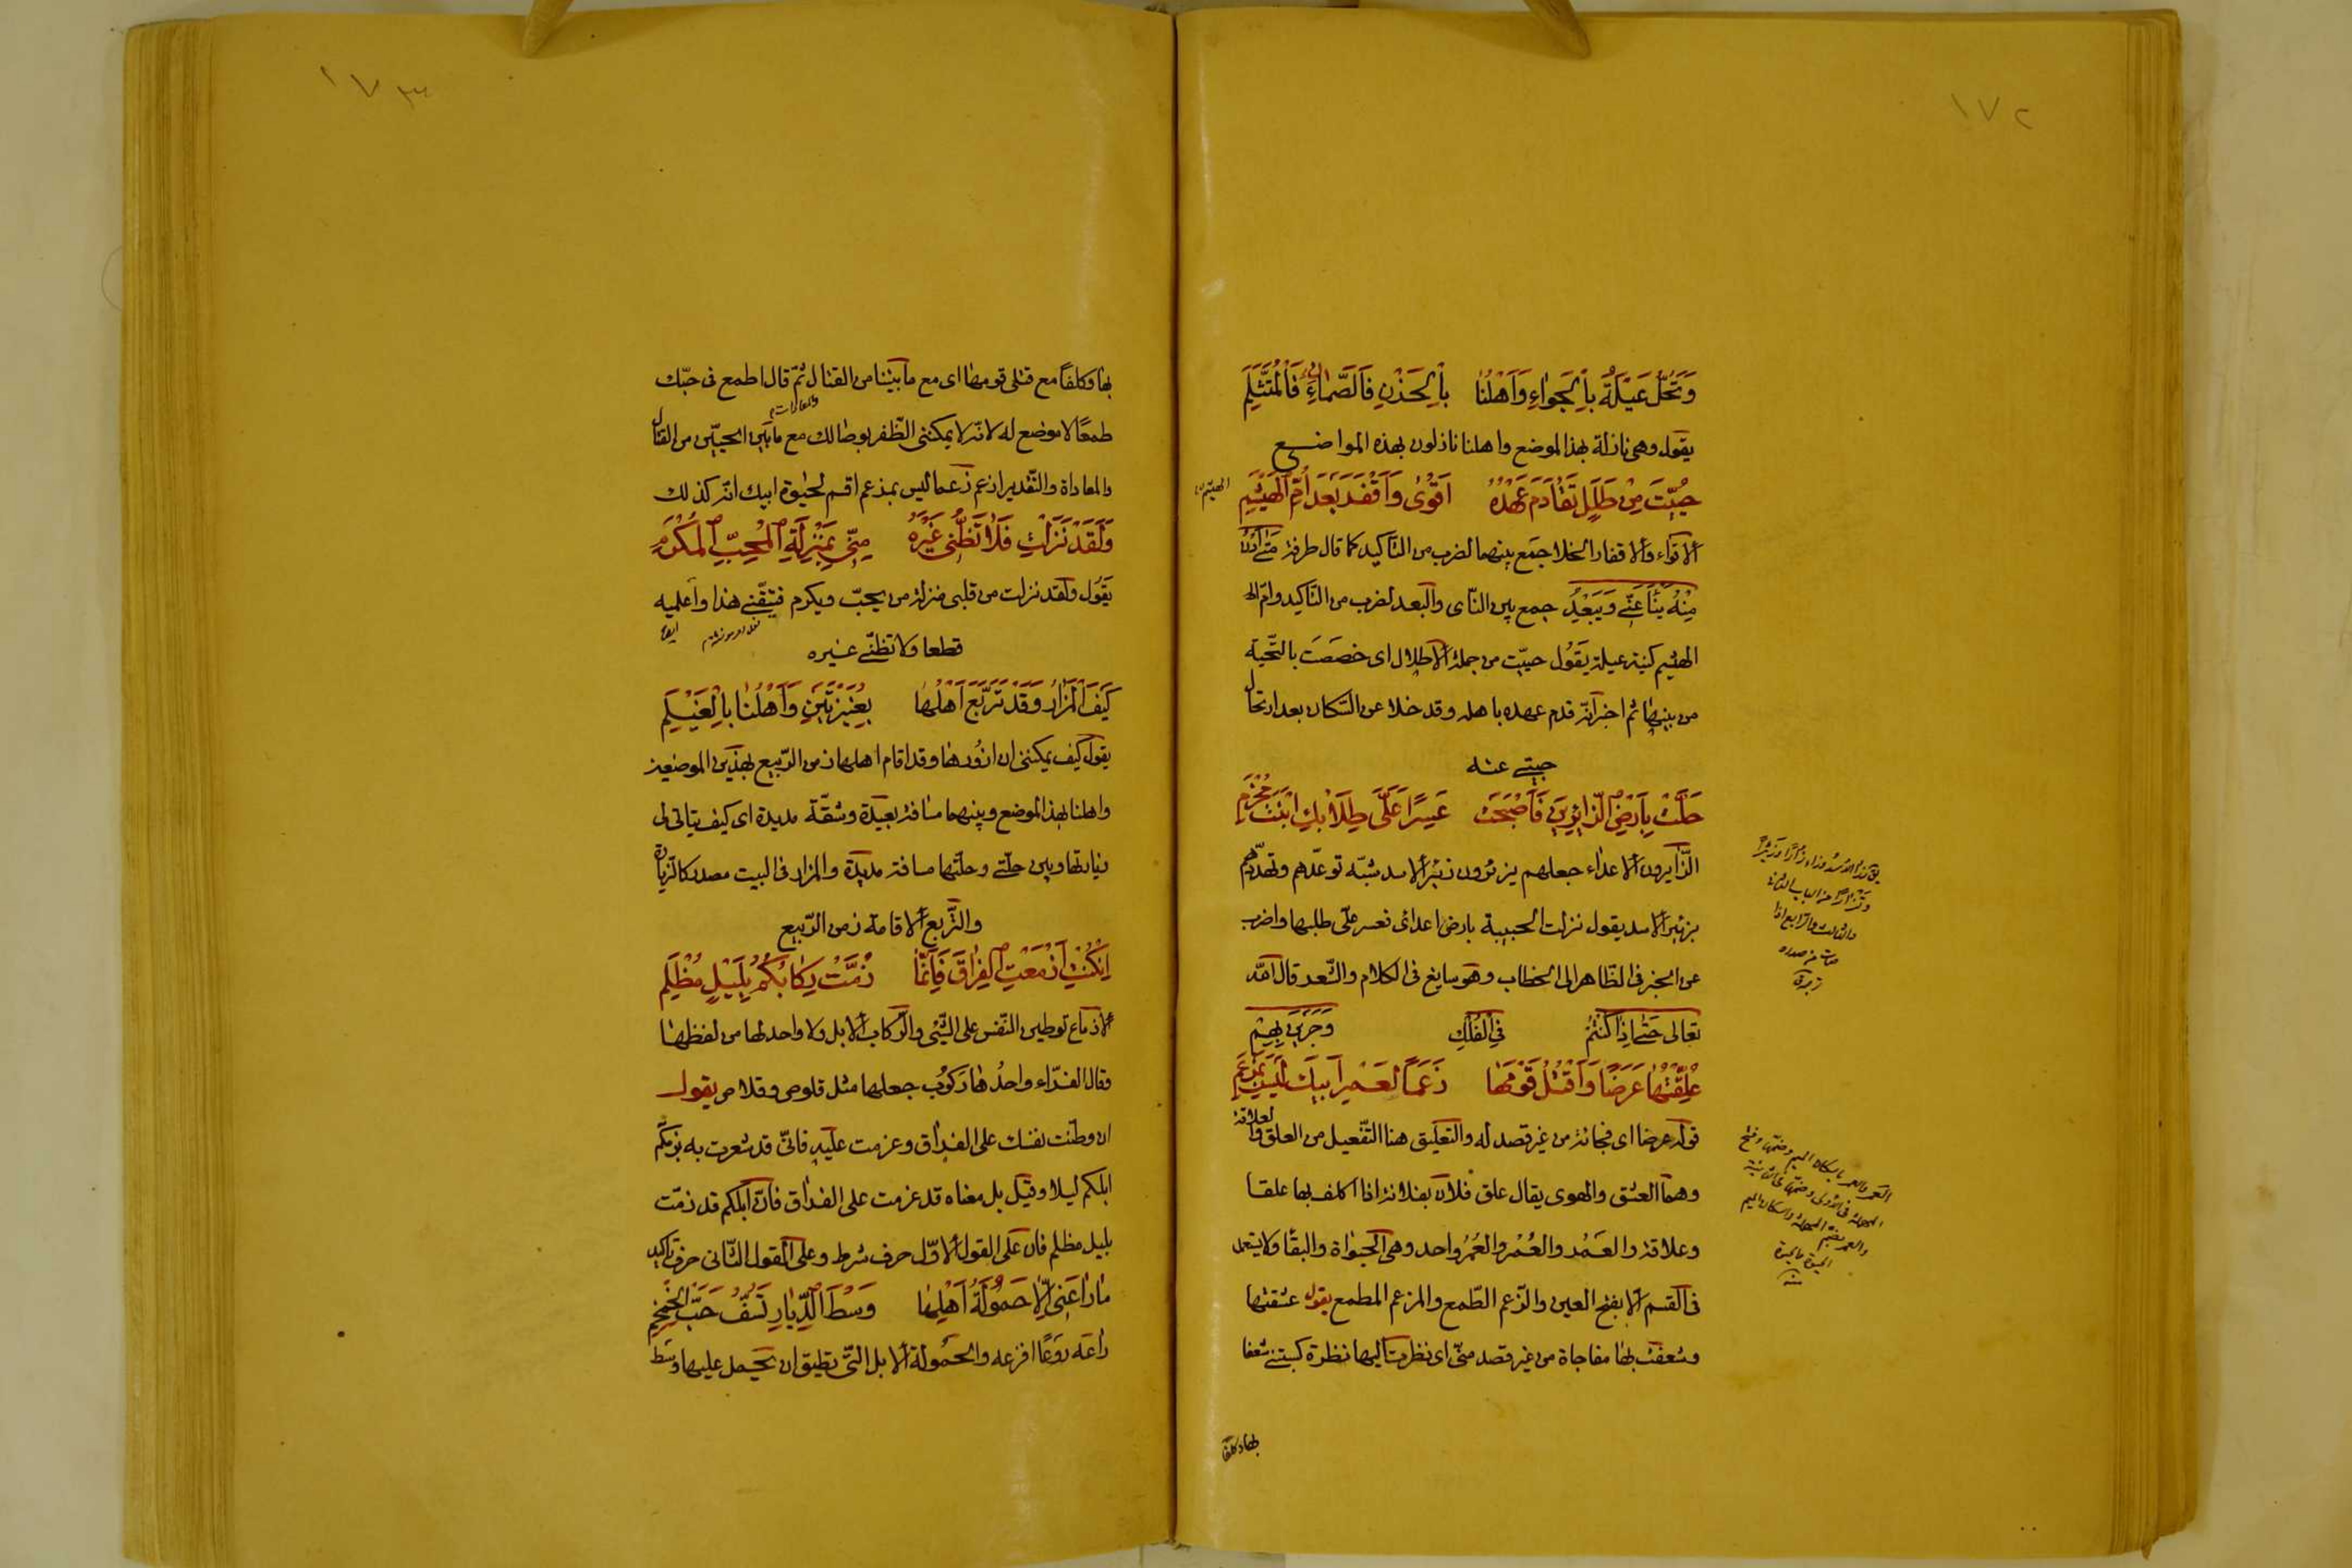 ١٧٢
وَتَحُلُّ عَبْلَةُ بِالْجَوَاءِ وَاَهْلُنَا بِالْحَزْنِ فَالصَّمَّاءِ فَالْمُتَثَلَّمِ
يقول وهى نازلة بهذا الموضع واهلنا نازلون بهذه المواضع
حُيِّيتَ مِنْ طَلَلٍ تَقَادَمَ عَهْدُهُ اَقْوٰى وَاَقْفَرَ بَعْدَ اُمِّ الْهَيْثَمِ
الهيثم
الاقواء والاقفار الخلا جمع بينهما لضرب من التأكيد كما قال طرفة مَتٰى اَدْنُ
مِنْهُ يَنْأَ عَنِّي وَيَبْعُدِ جمع بين النّاى والبعد لضرب من التّاكيد وامّ
الهثيم كنية عبلة يَقُول حيّيت من جملة الاطلال اى خصصت بالتّحيّة
من بينها ثم اخبر انّه قدم عهده باهله وقد خلا عن السّكان بعد ارتحال
حبيبتي عنه
حَلَّتْ بِاَرْضِ الزّائِرِينَ فَاَصْبَحَتْ عَسِرًا عَلَىَّ طِلَابُكِ ابْنَتَ مَخْرَمِ
الزّايرون الاعداء جعلهم يزئرون زئير الاسد شبّه توعّدهم وتهدّدهم
بزئير الاسد يقول نزلت الحبيبة بارض اعدائى فعسر علىّ طلبها واضرب
عن الخبر فى الظّاهر الى الخطاب وهو سايغ فى الكلام والشّعر قال الله
تعالى حَتّٰى اِذَا كُنْتُمْ فِي الْفُلْكِ وَجَرَيْنَ بِهِمْ
عُلِّقْتُهَا عَرَضًا وَاَقْتُلُ قَوْمَهَا زَعَمًا لَعَمْرُ اَبِيكَ لَيْسَ بِمَزْعَمِ
قوله عرضا اى فجائة من غير قصد له والتعليق هنا التّفعيل من العلق والعلاقة
وهما العشق والهوى يقال علق فلان بفلانة اذا اكلف بها علقا
وعلاقة والعَمْر والعُمْر والعُمُر واحد وهى الحيوٰاة والبقا ولا يستعمل
فى القسم الا بفتح العين والزّعم الطّمع والمزعم المطمع يقول عشقتها
وشعفت بها مفاجاة من غير قصد منّى اى نظرت اليها نظرة كسبتنى شعفا
بها وكلفا
١٧٣
بها وكلفًا مع قتلى قومها اى مع ما بيننا من القتال ثمّ قال اطمع فى حبّك
طمعًا لا موضع له لانّه لا يمكننى الظّفر بوصالك مع ما بين الحيّين من القتال
والمعاداة والتّقدير ازعم زعما ليس بمزعم اقسم لحيٰوة ابيك انّه كذلك
وَلَقَدْ نَزَلْتِ فَلَا تَظُنِّي غَيْرَهُ مِنِّي بِمَنْزِلَةِ الْمُحَبِّ الْمُكْرَمِ
يَقُول ولقد نزلت من قلبى منزلة من يحبّ ويكرم فتيقّني هذا واعلميه
قطعا ولا تظنّي غيره
كَيْفَ الْمَزَارُ وَقَدْ تَرَبَّعَ اَهْلُهَا بِعُنَيْزَتَيْنِ وَاَهْلُنَا بِالْغَيْلَمِ
يقول كيف يمكننى ان ازورها وقد اقام اهلها زمن الرّبيع بهذين الموضعين
واهلنا بهذا الموضع وبينهما مسافة بعيدة وشقّة مديدة اى كيف يتاتى لى
زيارتها وبين حلّتي وحلّتها مسافة مديدة والمزار فى البيت مصدر كالزّيارة
والتّربع الاقامة زمن الرّبيع
اِنْ كُنْتِ اَزْمَعْتِ الْفِرَاقَ فَاِنَّمَا زُمَّتْ رِكَابُكُمُ بِلَيْلٍ مُظْلِمِ
الازماع توطين النّفس على الشّئ والرّكاب الابل ولا واحد لها من لفظها
وقال الفرّاء واحدُها رَكُوب جعلها مثل قلوص وقلاص يقول
ان وطّنت نفسك على الفراق وعزمت عليه فانّى قد شعرت به بزمّكم
ابلكم ليلا وقيل بل معناه قد عزمت على الفراق فانّ ابلكم قد زمّت
بليل مظلم فان على القول الاوّل حرف شرط وعلى القول الثّانى حرف تاكيد
مَا رَاعَنِي اِلَّا حَمُولَةُ اَهْلِهَا وَسْطَ الدِّيَارِ تَسَفُّ حَبَّ الْخِمْخِمِ
راعه روعًا افزعه والحمولة الابل الّتى تطيق ان يحمل عليها وسط